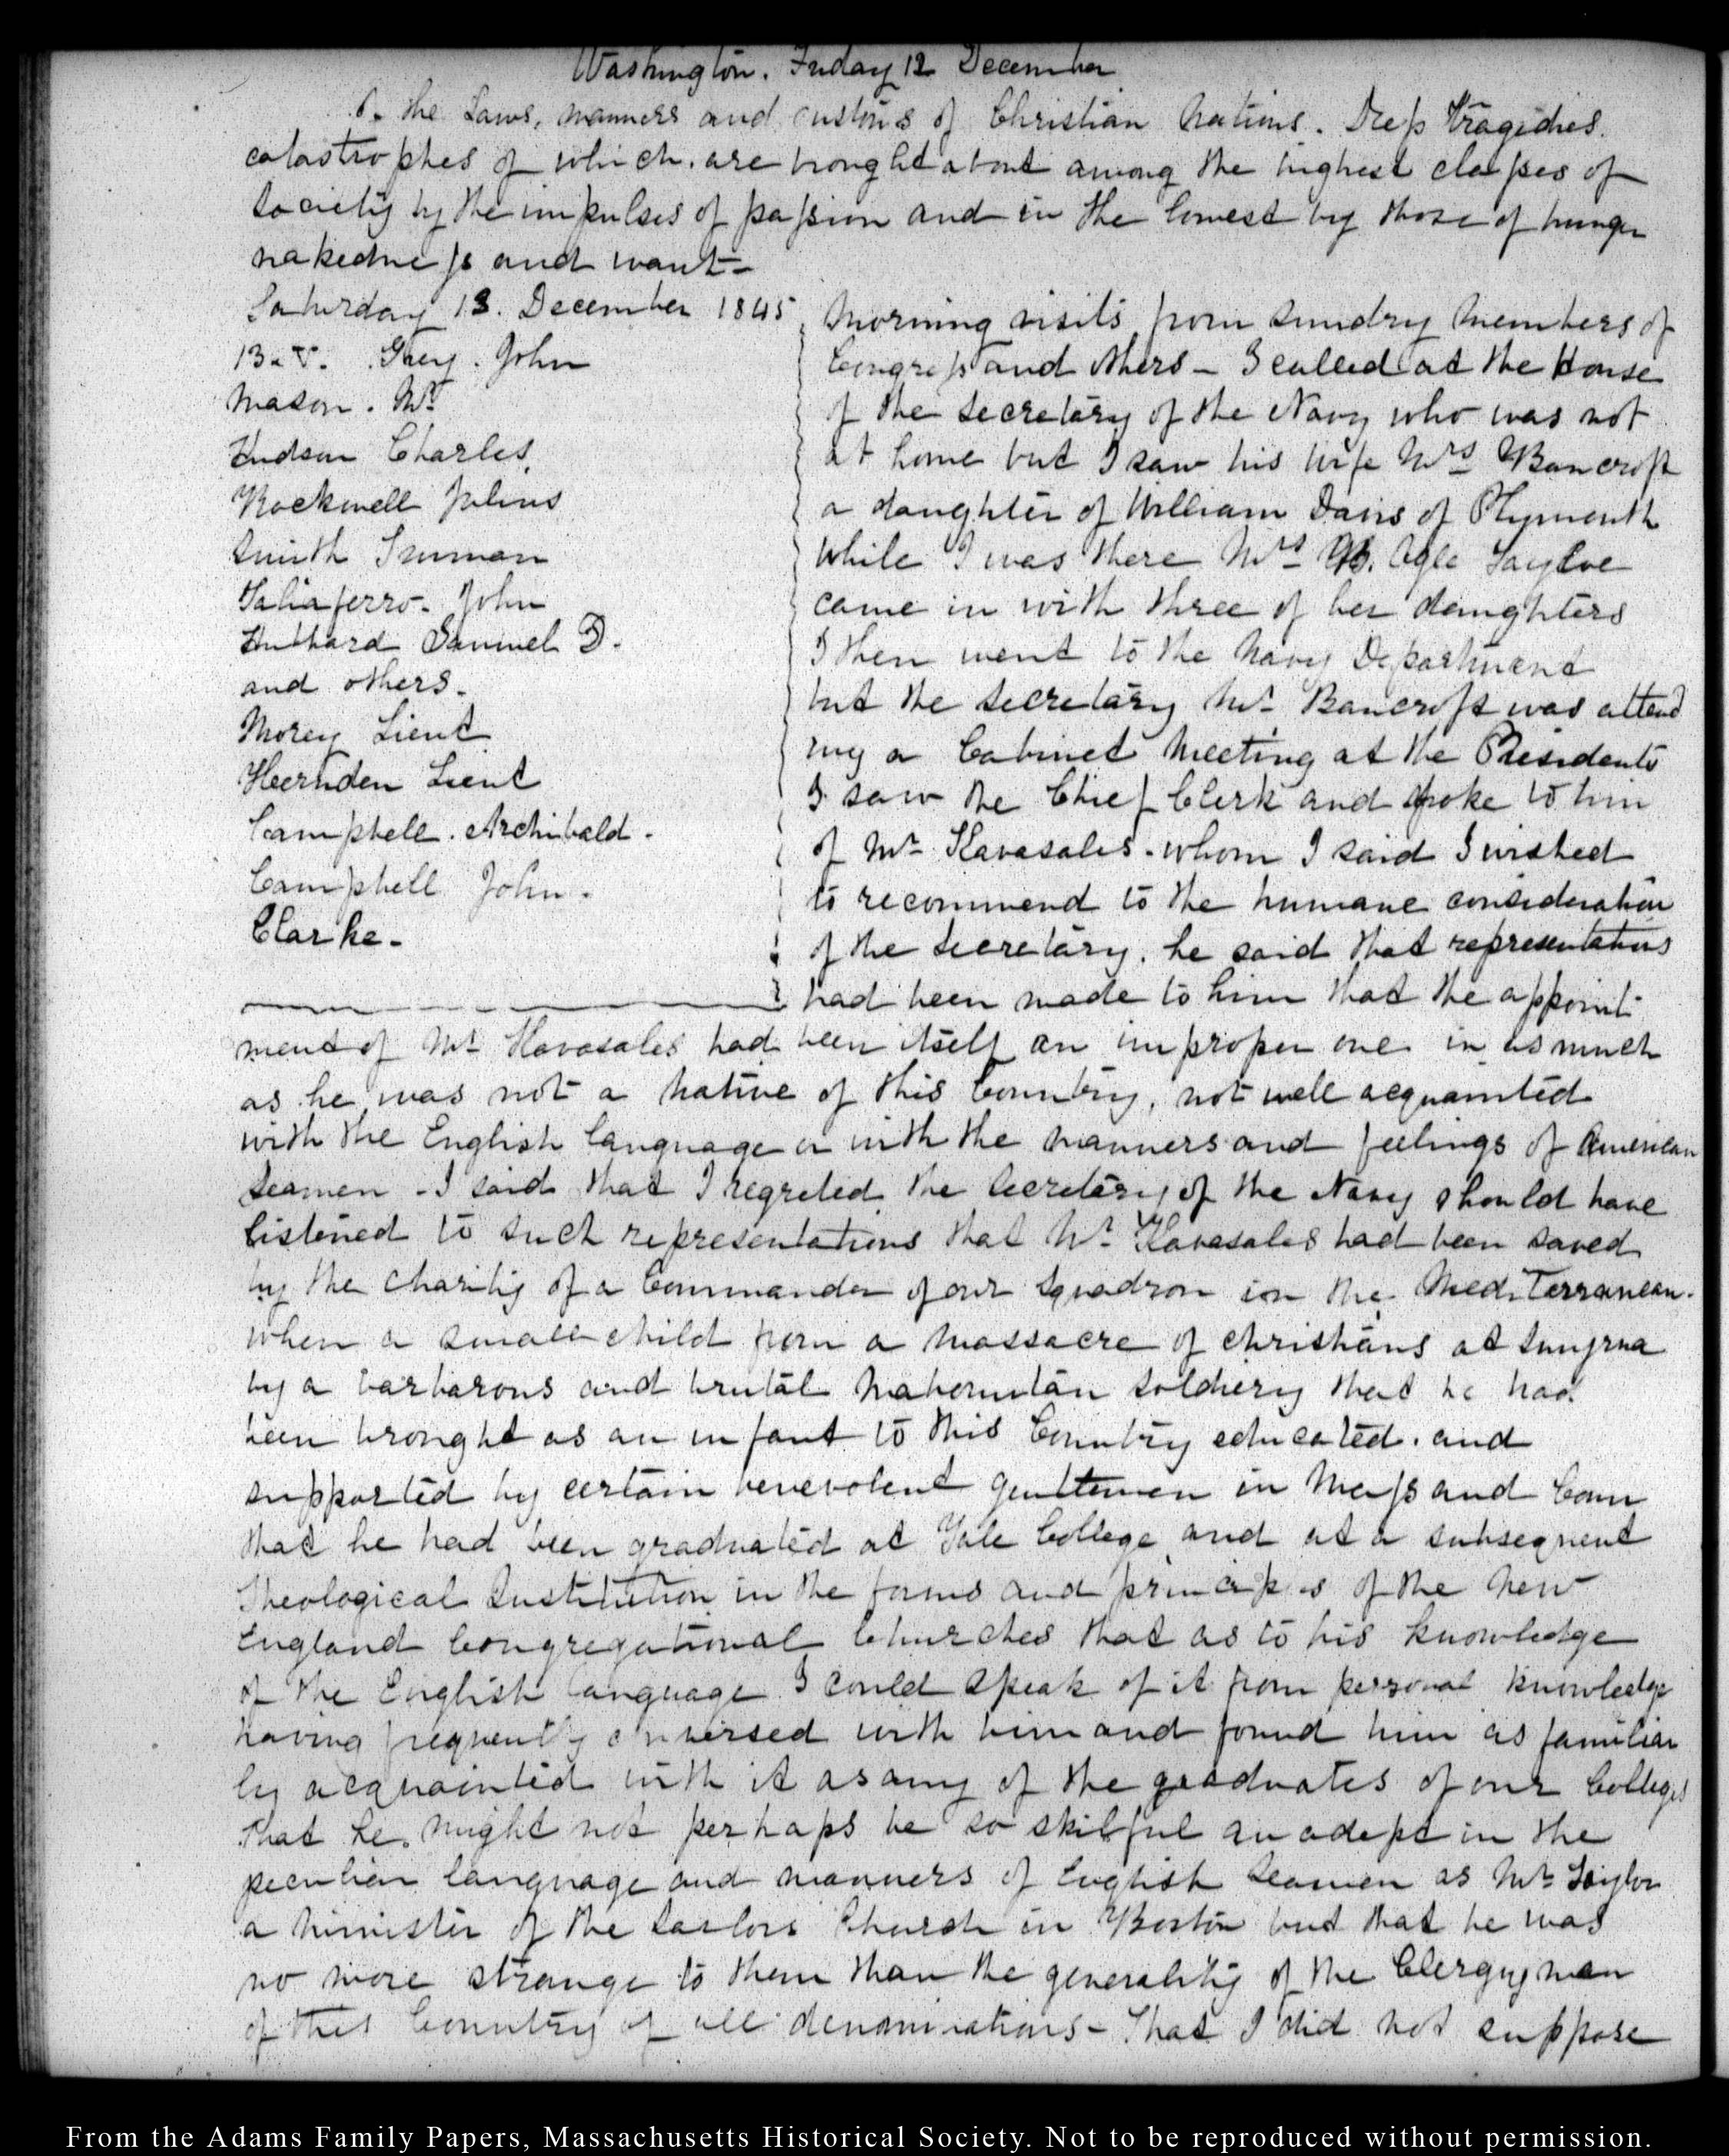 Washington. Friday 12 December
to the Laws, manners and customs of Christian Nations. Deep Tragedies.
catastrophes of which are brought about among the highest classes of
Society by the impulses of passion and in the lowest by those of hunger
nakedness and want—
Saturday 13. December 1845
13. V. Grey. John
Mason. Mr
Hudson Charles.
Rockwell Julius
Smith Truman
Taliaferro. John
Hubbard Samuel D.
and others.
Morey Lieut
Hernden Lieut
Campbell. Archibald.
Campbell John.
Clarke.
Morning visits from sundry Members of
Congress and others — I called at the House
of the Secretary of the Navy who was not
at home but I saw his wife Mrs Bancroft
a daughter of William Davis of Plymouth
while I was there Mrs Ogle Tayloe
came in with three of her daughters
I then went to the Navy Department
but the Secretary Mr Bancroft was attend
ing a Cabinet Meeting at the Presidents
I saw the Chief Clerk and spoke to him
of Mr Kavasales. whom I said I wished
to recommend to the humane consideration
of the Secretary. he said that representations
had been made to him that the appoint-
ment of Mr Kavasales had been itself an improper one in as much
as he was not a native of this Country, not well acquainted
with the English language or with the manners and feelings of American
Seamen — I said that I regreted the Secretary of the Navy should have
listened to such representations that Mr Kavasales had been saved
by the charity of a Commander of our Squadron in the Mediterranean.
when a small child from a massacre of christians at Smyrna
by a barbarous and brutal mahometan soldiery that he had
been brought as an infant to this Country educated. and
supported by certain benevolent gentlemen in Mass and Conn
that he had been graduated at Yale College and at a subsequent
Theological Institution in the forms and principles of the New
England Congregational Churches that as to his knowledge
of the English language I could speak of it from personal knowledge
having frequently conversed with him and found him as familiar
ly acquainted with it as any of the graduates of our Colleges
that he might not perhaps be so skilful an adept in the
peculiar language and manners of English Seamen as Mr Taylor
a minister of the Sailors Church in Boston but that he was
no more strange to them than the generality of the Clergymen
of this Country of all denominations — That I did not suppose
From the Adams Family Papers, Massachusetts Historical Society. Not to be reproduced without permission.